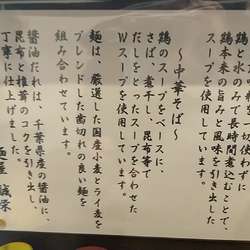 料を一切使わずに、
鶏と水のみで長時間煮込むことで、
鶏本来の旨みと風味を引き出した
スープを使用しています。
～中華そば～
鶏のスープをベースに、
さば、煮干し、昆布等で
だしをとったスープを合わせた
Wスープを使用しています。
麺は、厳選した国産小麦とライ麦を
ブレンドした歯切れの良い麺を
組み合わせています。
醤油だれは、千葉県産の醤油に、
昆布と椎茸のコクを引き出し、
丁寧に仕上げました。
麺屋